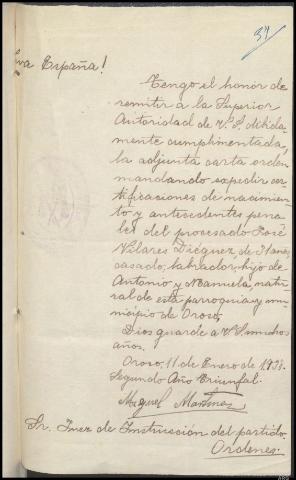 39
iva España!
Tengo el honor de
remitir a la Superior
Autoridad de V. S. debida-
mente cumplimentada,
la adjunta carta orden
mandando expedir cer-
tificaciones de nacimien-
to y antecedentes pena-
les del procesado José
Vilares Diéguez, de años,
casado, labrador, hijo de
Antonio y Manuela, natu-
ral de esta parroquia y mu-
nicipio de Oroso,
Dios guarde a V. S. muchos
años.
Oroso, 11 de Enero de 1938.
Segundo Año Triunfal.
Miguel Martinez
Sr. Juez de Instrucción del partido.
Ordenes.